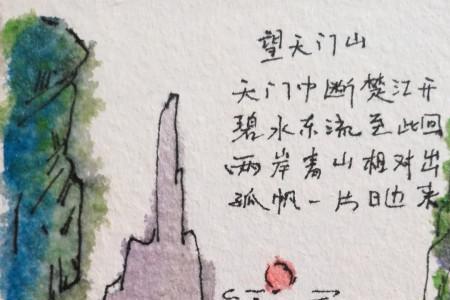 望天门山
天门中断楚江开
碧水东流至此回
两岸青山相对出
孤帆一片日边来